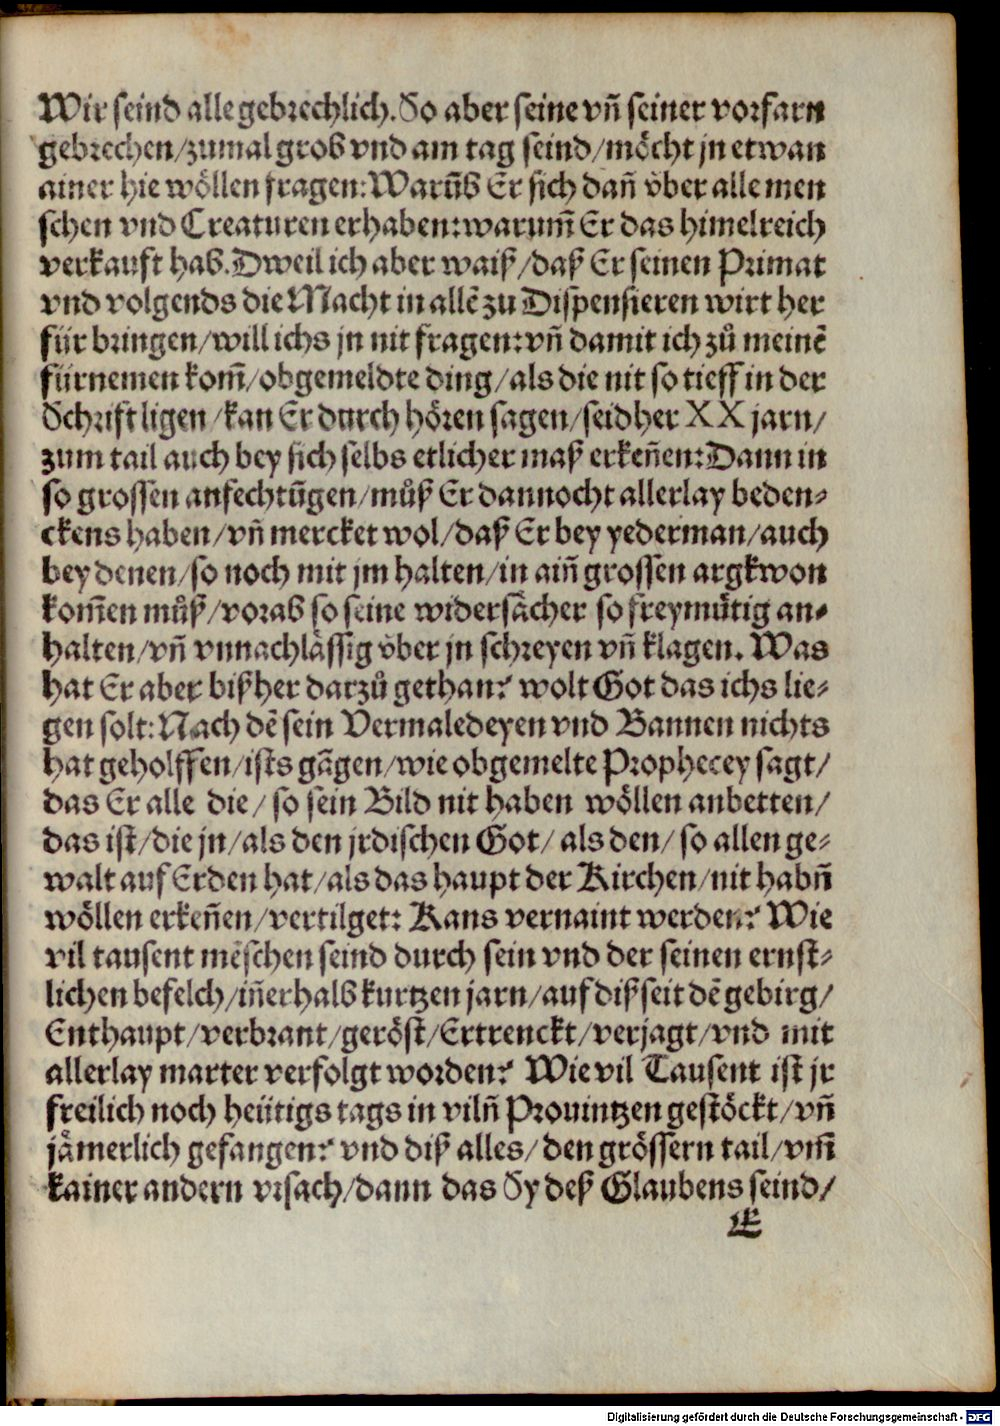 Wir seind alle gebrechlich. So aber seine vñ seiner vorfarn
gebrechen/zumal grob vnd am tag seind/möcht jn etwan
ainer hie wöllen fragen: Warũb Er sich dañ v̈ber alle men
schen vnd Creaturen erhaben: warum̃ Er das himelreich
verkauft hab. Dweil ich aber waiß/daß Er seinen Primat
vnd volgends die Macht in allẽ zu Dispensieren wirt her
für bringen/will ichs jn nit fragen: vñ damit ich zů meinẽ
fürnemen kom̃/obgemeldte ding/als die nit so tieff in der
Schrift ligen/kan Er durch hören sagen/seidher XX jarn/
zum tail auch bey sich selbs etlicher maß erkeñen: Dann in
so grossen anfechtũgen/můß Er dannocht allerlay beden⸗
ckens haben/vñ mercket wol/daß Er bey yederman/auch
bey denen/so noch mit jm halten/in aiñ grossen argkwon
kom̃en můß/vorab so seine widersächer so freymütig an⸗
halten/vñ vnnachlässig v̈ber jn schreyen vñ klagen. Was
hat Er aber bißher darzů gethan? wolt Got das ichs lie⸗
gen solt: Nach dẽ sein Vermaledeyen vnd Bannen nichts
hat geholffen/ists gãgen/wie obgemelte Prophecey sagt/
das Er alle die/ so sein Bild nit haben wöllen anbetten/
das ist/die jn/als den jrdischen Got/ als den/ so allen ge⸗
walt auf Erden hat/als das haupt der Kirchen/nit habñ
wöllen erkeñen/vertilget: Kans vernaint werden? Wie
vil tausent mẽschen seind durch sein vnd der seinen ernst⸗
lichen befelch/iñerhalb kurtzen jarn/auf dißseit dẽ gebirg/
Enthaupt/verbrant/geröst/Ertrenckt/verjagt/vnd mit
allerlay marter verfolgt worden? Wie vil Tausent ist jr
freilich noch heütigs tags in vilñ Prouintzen gestöckt/vñ
jämerlich gefangen? vnd diß alles/ den grössern tail/vm̃
kainer andern vrsach/dann das Sy deß Glaubens seind/
Æ
Digitalisierung gefördert durch die Deutsche Forschungsgemeinschaft - DFG